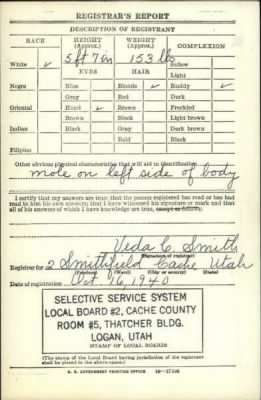 REGISTRAR'S REPORT
DESCRIPTION OF REGISTRANT
RACE HEIGHT (Approx.) WEIGHT (Approx.) COMPLEXION
5 ft 7 in 153 lbs
White ✓ Sallow
EYES HAIR Light
Negro Blue Blonde ✓ Ruddy ✓
Gray Red Dark
Oriental Hazel ✓ Brown Freckled
Brown Black Light brown
Indian Black Gray Dark brown
Bald Black
Filipino
Other obvious physical characteristics that will aid in identification
mole on left side of body
I certify that my answers are true; that the person registered has read or has had
read to him his own answers; that I have witnessed his signature or mark and that
all of his answers of which I have knowledge are true, except as follows:
Veda C. Smith
(Signature of registrar)
Registrar for 2 Smithfield Cache Utah
(Precinct) (Ward) (City or county) (State)
Date of registration Oct. 16, 1940
SELECTIVE SERVICE SYSTEM
LOCAL BOARD #2, CACHE COUNTY
ROOM #5, THATCHER BLDG.
LOGAN, UTAH
STAMP OF LOCAL BOARD
(The stamp of the Local Board having jurisdiction of the registrant
shall be placed in the above space.)
U. S. GOVERNMENT PRINTING OFFICE 16—17108